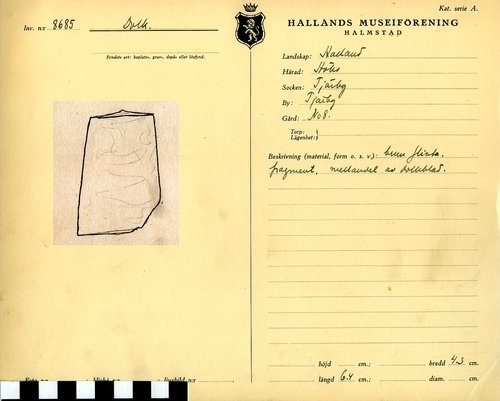 Inv. n:r 8685 Dolk.
Fyndets art: boplats-, grav-, depå- eller lösfynd.
Kat. serie A.
HALLANDS MUSEIFÖRENING
HALMSTAD
Landskap: Halland
Härad: Höks
Socken: Tjärby
By: Tjärby
Gård: No 8.
Torp:
Lägenhet:
Beskrivning (material, form o. s. v.): flinta.
fragment, mellandel av dolkblad.
höjd cm.; bredd 4.3 cm.
längd 6.4 cm.; diam. cm.